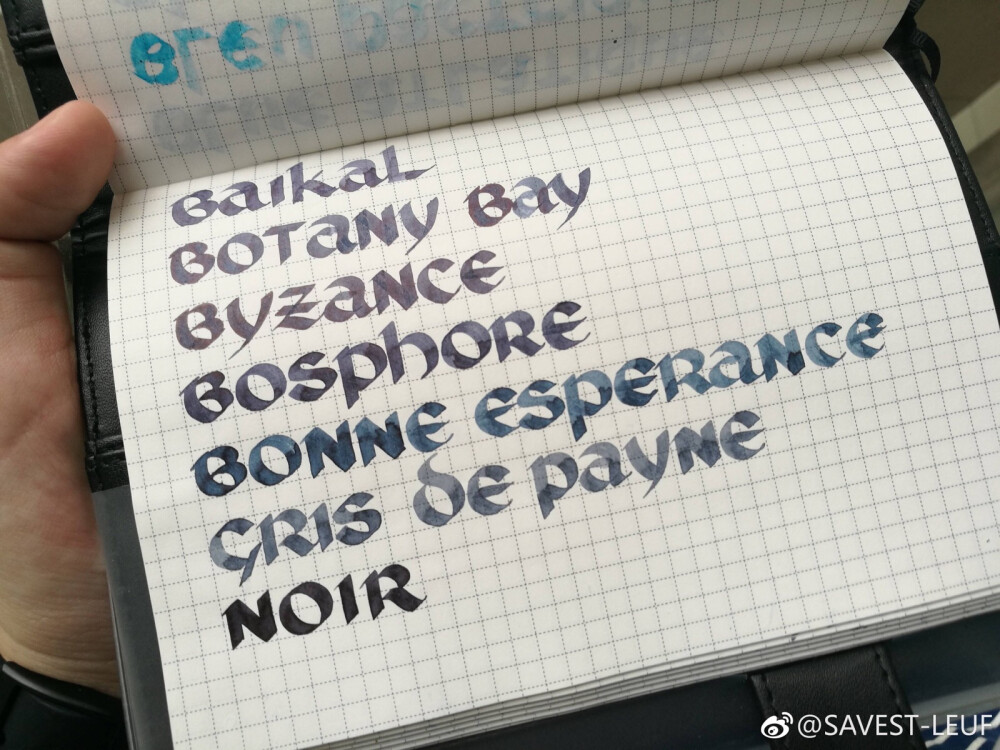 Baikal
Botany Bay
Byzance
Bosphore
Bonne Esperance
Gris de Payne
Noir
@SAVEST-LEUF